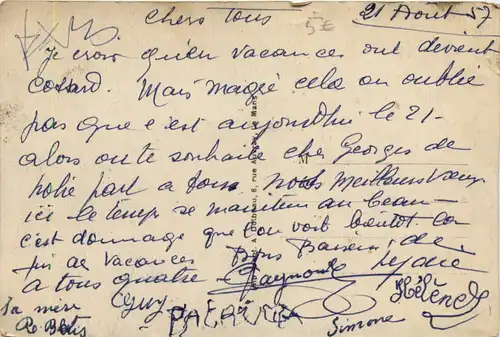 Chers tous
5€
21 Août 57
Je crois qu'en vacances on devient
cossard. Mais malgré cela on oublie
pas que c'est aujourd'hui le 21-
alors on te souhaite cher Georges de
notre part à tous nos meilleurs vœux
ici le temps se maintien au beau-
c'est dommage que l'on voit bientôt la
fin de vacances Bons Baisers de
à tous quatre Raymonde
Guy
la mère
PATRICK
Simone
Hélène